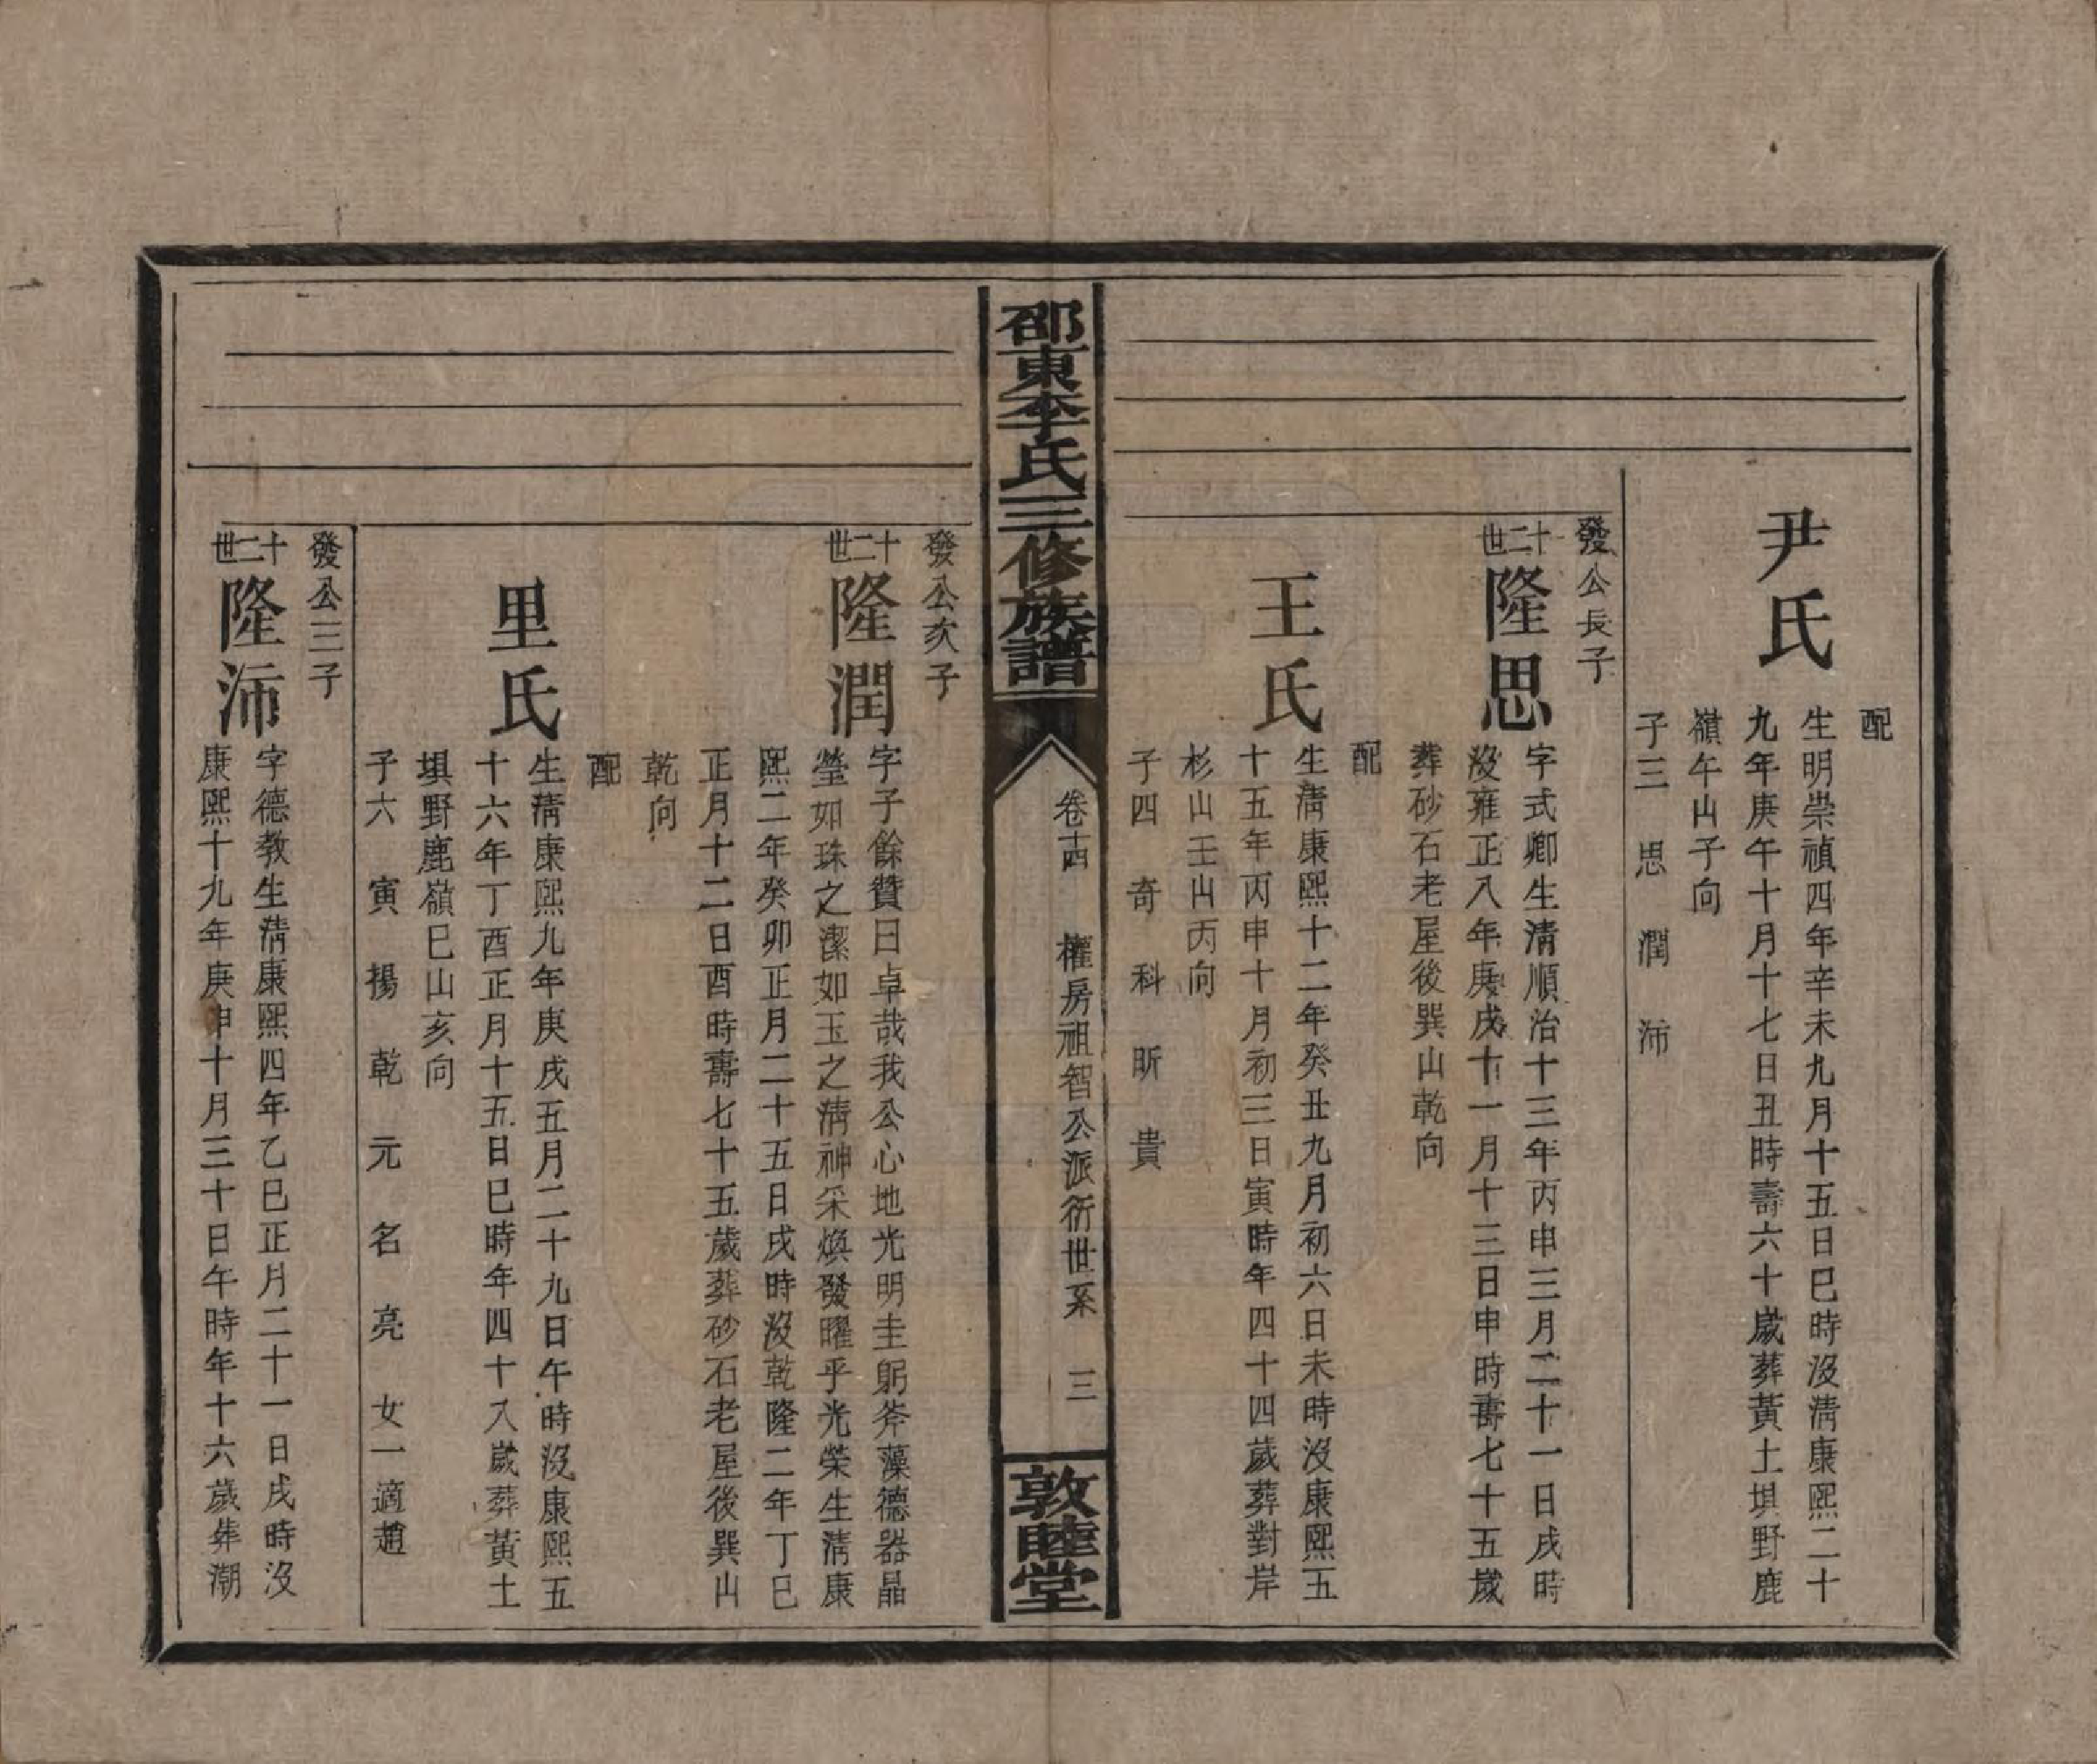 配
尹氏
生明崇禎四年辛未九月十五日巳時沒清康熙二十
九年庚午十月十七日丑時壽六十歲葬黃土垻野鹿
嶺午山子向
子三　思　潤　沛
發公長子
十二世
隆思
字式卿生清順治十三年丙申三月二十一日戌時
沒雍正八年庚戌十一月十三日申時壽七十五歲
葬砂石老屋後巽山乾向
配
王氏
生清康熙十二年癸丑九月初六日未時沒康熙五
十五年丙申十月初三日寅時年四十四歲葬對岸
杉山壬山丙向
子四　奇　科　昕　貴
邵東李氏三修族譜
卷十四　權房祖智公派衍世系　三
敦睦堂
發公次子
十二世
隆潤
字子餘贊曰卓哉我公心地光明圭躬斧藻德器晶
瑩如珠之潔如玉之清神采煥發曜乎光榮生清康
熙二年癸卯正月二十五日戌時沒乾隆二年丁巳
正月十二日酉時壽七十五歲葬砂石老屋後巽山
乾向
配
里氏
生清康熙九年庚戌五月二十九日午時沒康熙五
十六年丁酉正月十五日巳時年四十八歲葬黃土
垻野鹿嶺巳山亥向
子六　寅　揚　乾　元　名　亮　女一適趙
發公三子
十二世
隆沛
字德教生清康熙四年乙巳正月二十一日戌時沒
康熙十九年庚申十月三十日午時年十六歲葬潮